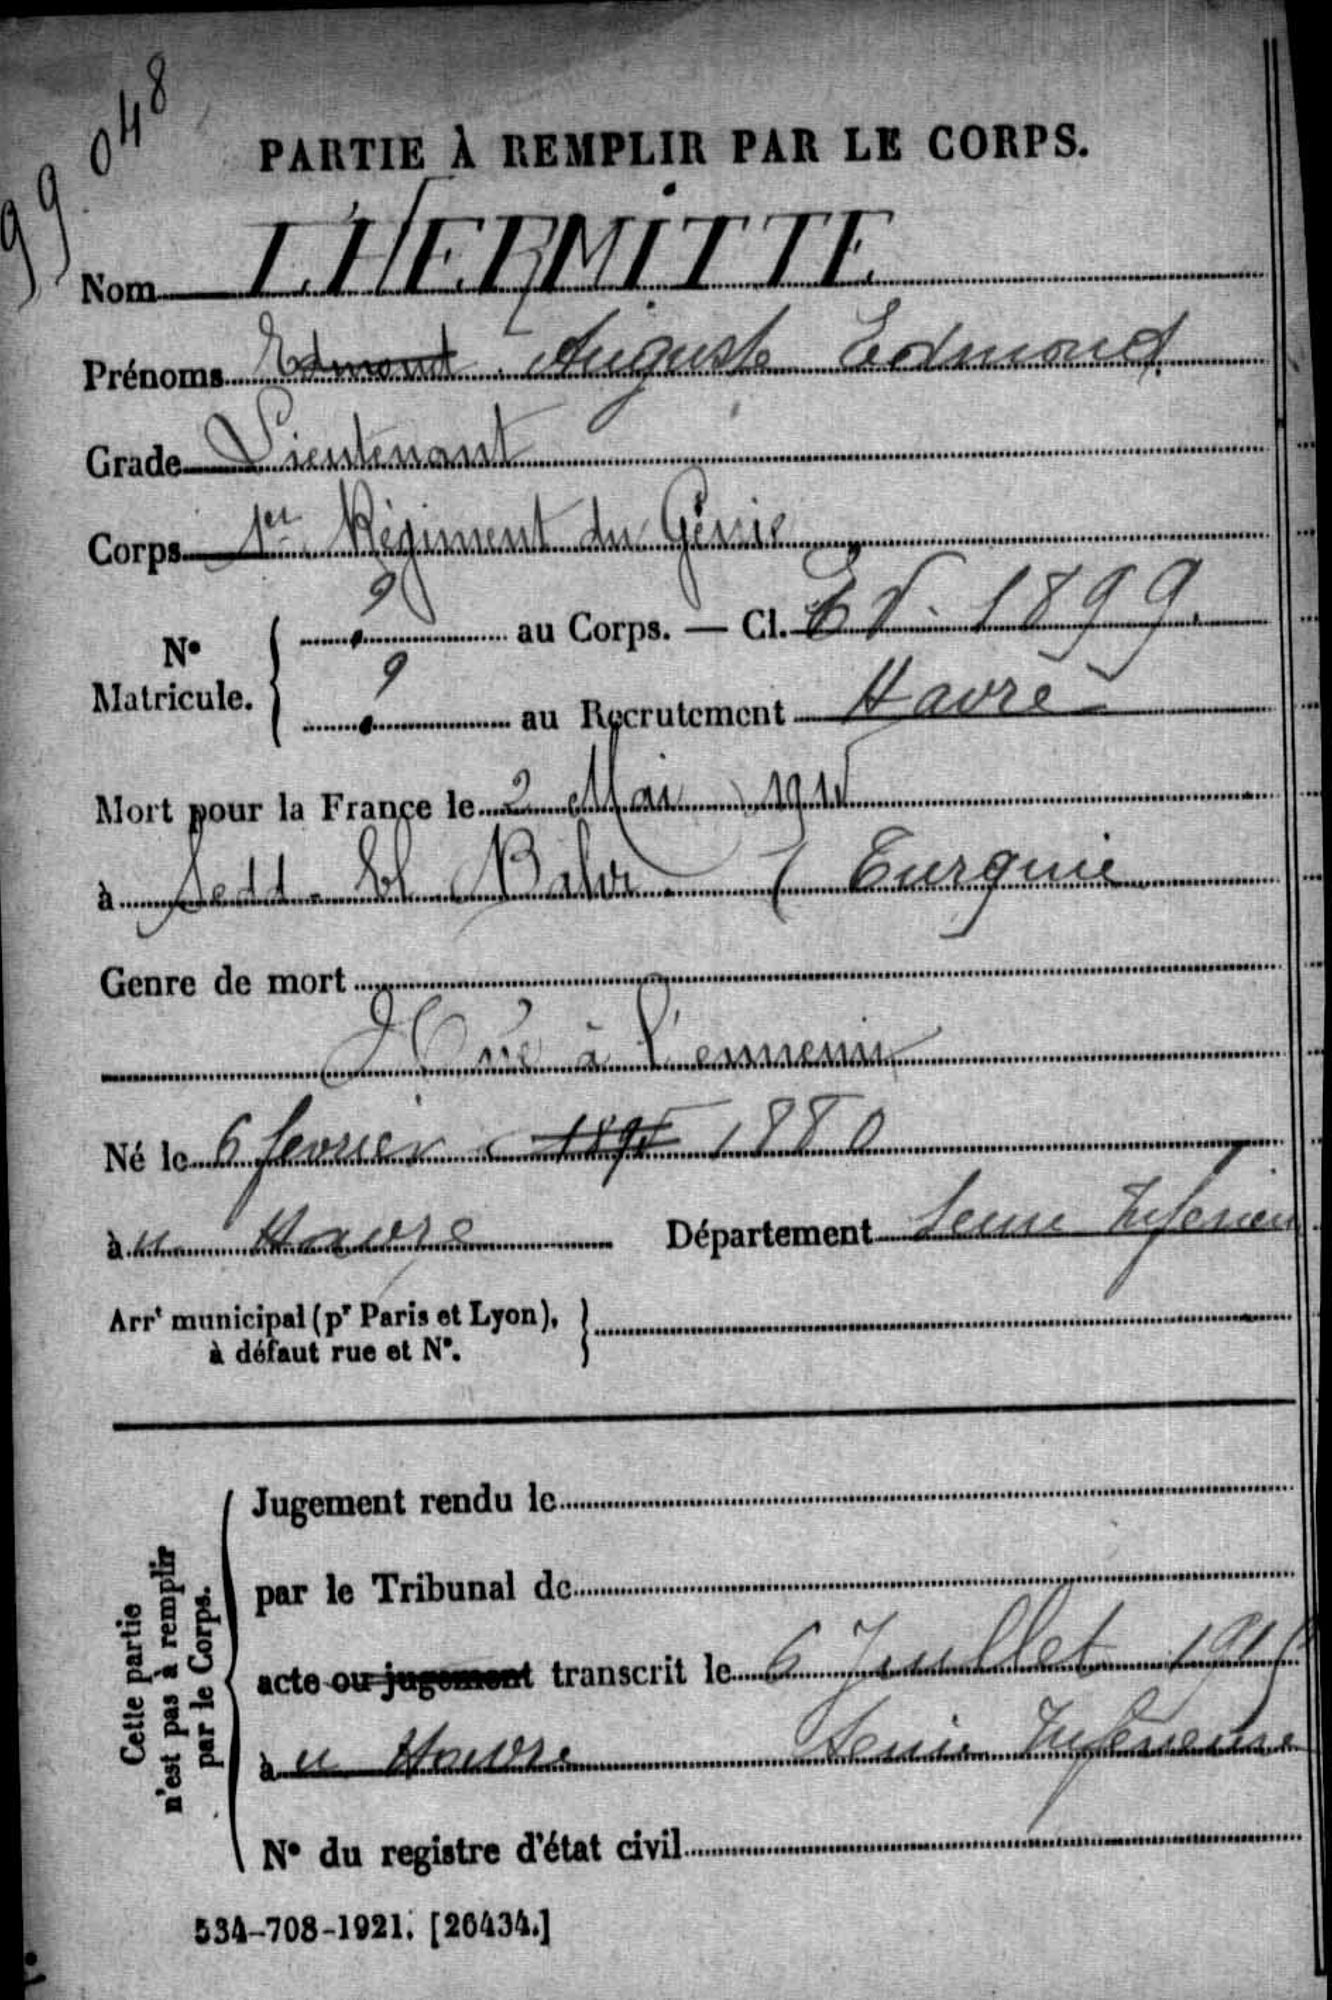 99.048
PARTIE À REMPLIR PAR LE CORPS.
Nom L'HERMITTE
Prénoms Edmond Auguste Edmond
Grade Lieutenant
Corps 1er Régiment du Génie
N° Matricule. { ? au Corps. — Cl. EV. 1899.
? au Recrutement Havre
Mort pour la France le 2 Mai 1915
à Sedd-El Bahr ( Turquie
Genre de mort
Tué à l'ennemi
Né le 6 février 1895 1880
à u Havre Département Seine Inférieu
Arrt municipal (pr Paris et Lyon), à défaut rue et N°. }
Cette partie n'est pas à remplir par le Corps.
Jugement rendu le
par le Tribunal de
acte ou jugement transcrit le 6 Juillet 1915
à u Havre Seine Inférieure
N° du registre d'état civil
534-708-1921. [26434.]